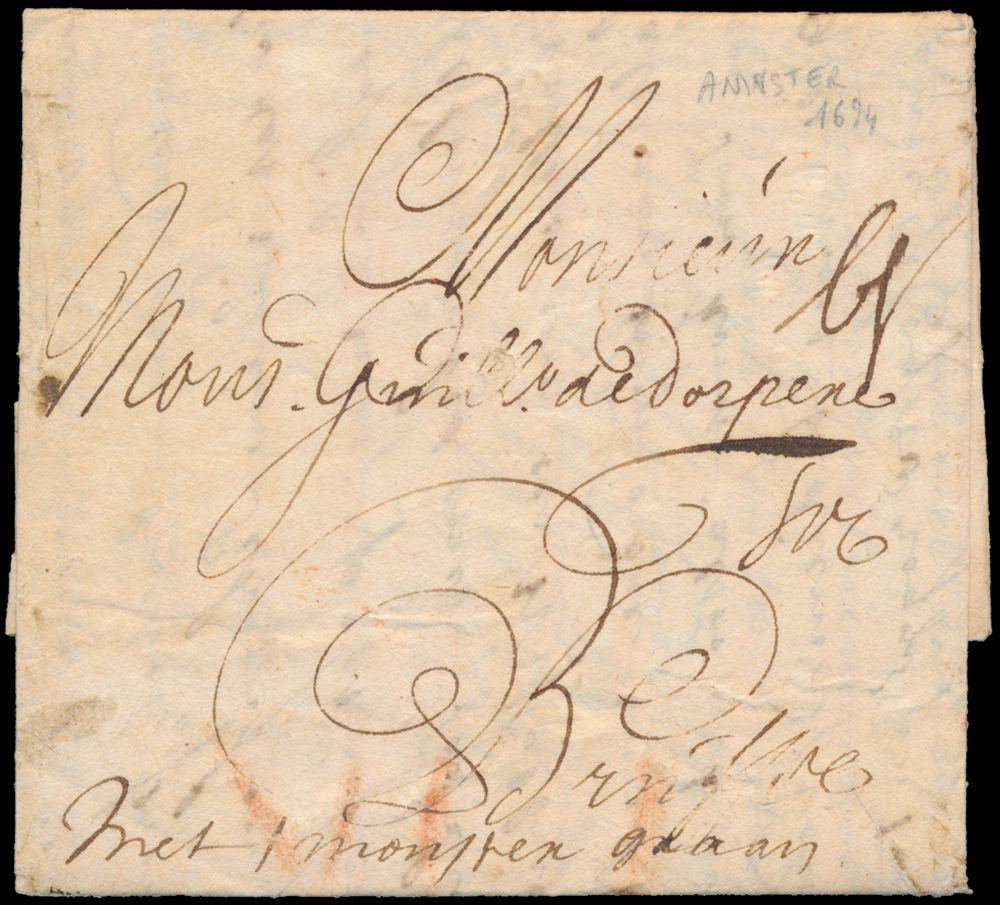 AMNSTER
1694
Monsieur
Mons.r Guill.o de Dorpere
tot
Brugghe
Met 1 monster graan